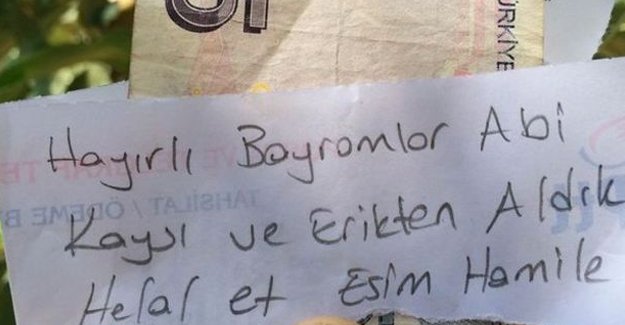 TÜRKİYE
Hayırlı Bayramlar Abi
Kaysı ve Erikten Aldık
Helal et Eşim Hamile
TAHSİLAT / ÖDEME B